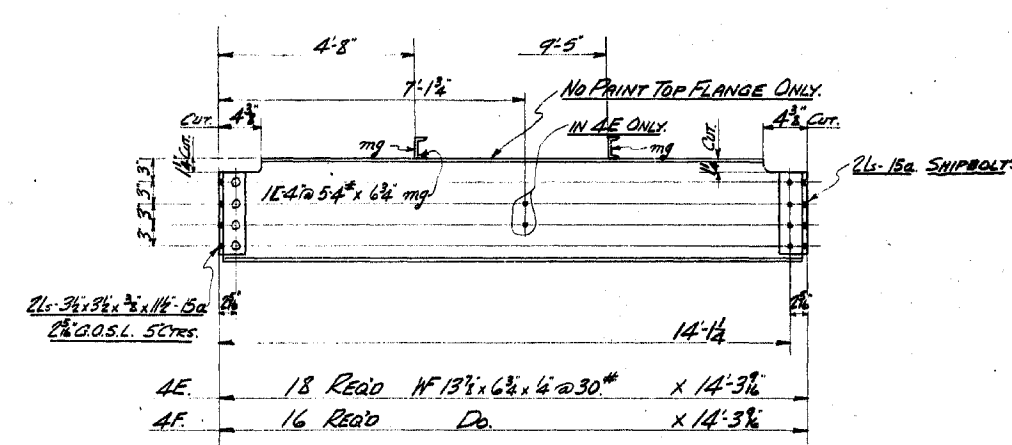 4'-8" 9'-5"
7'-1 3/4"
No Paint Top Flange Only.
Cut. 4 3/8" 4 3/8" Cut.
In 4E Only.
mg mg
1 1/4" Cut. 1 1/4" Cut.
2Ls-15a. Shipbolt.
1[-4"@5.4# x 6 3/4" mg
3" 3" 3" 3"
2Ls-3 1/2 x 3 1/2 x 3/8 x 11 1/2"-15a
2 5/16" 2 5/16"
2 5/16" G.O.S.L. 5 Ctrs.
14'-1 1/4
4E. 18 Req'd WF 13 7/8 x 6 3/4 x 1/4" @ 30# x 14'-3 9/16"
4F. 16 Req'd Do. x 14'-3 9/16"